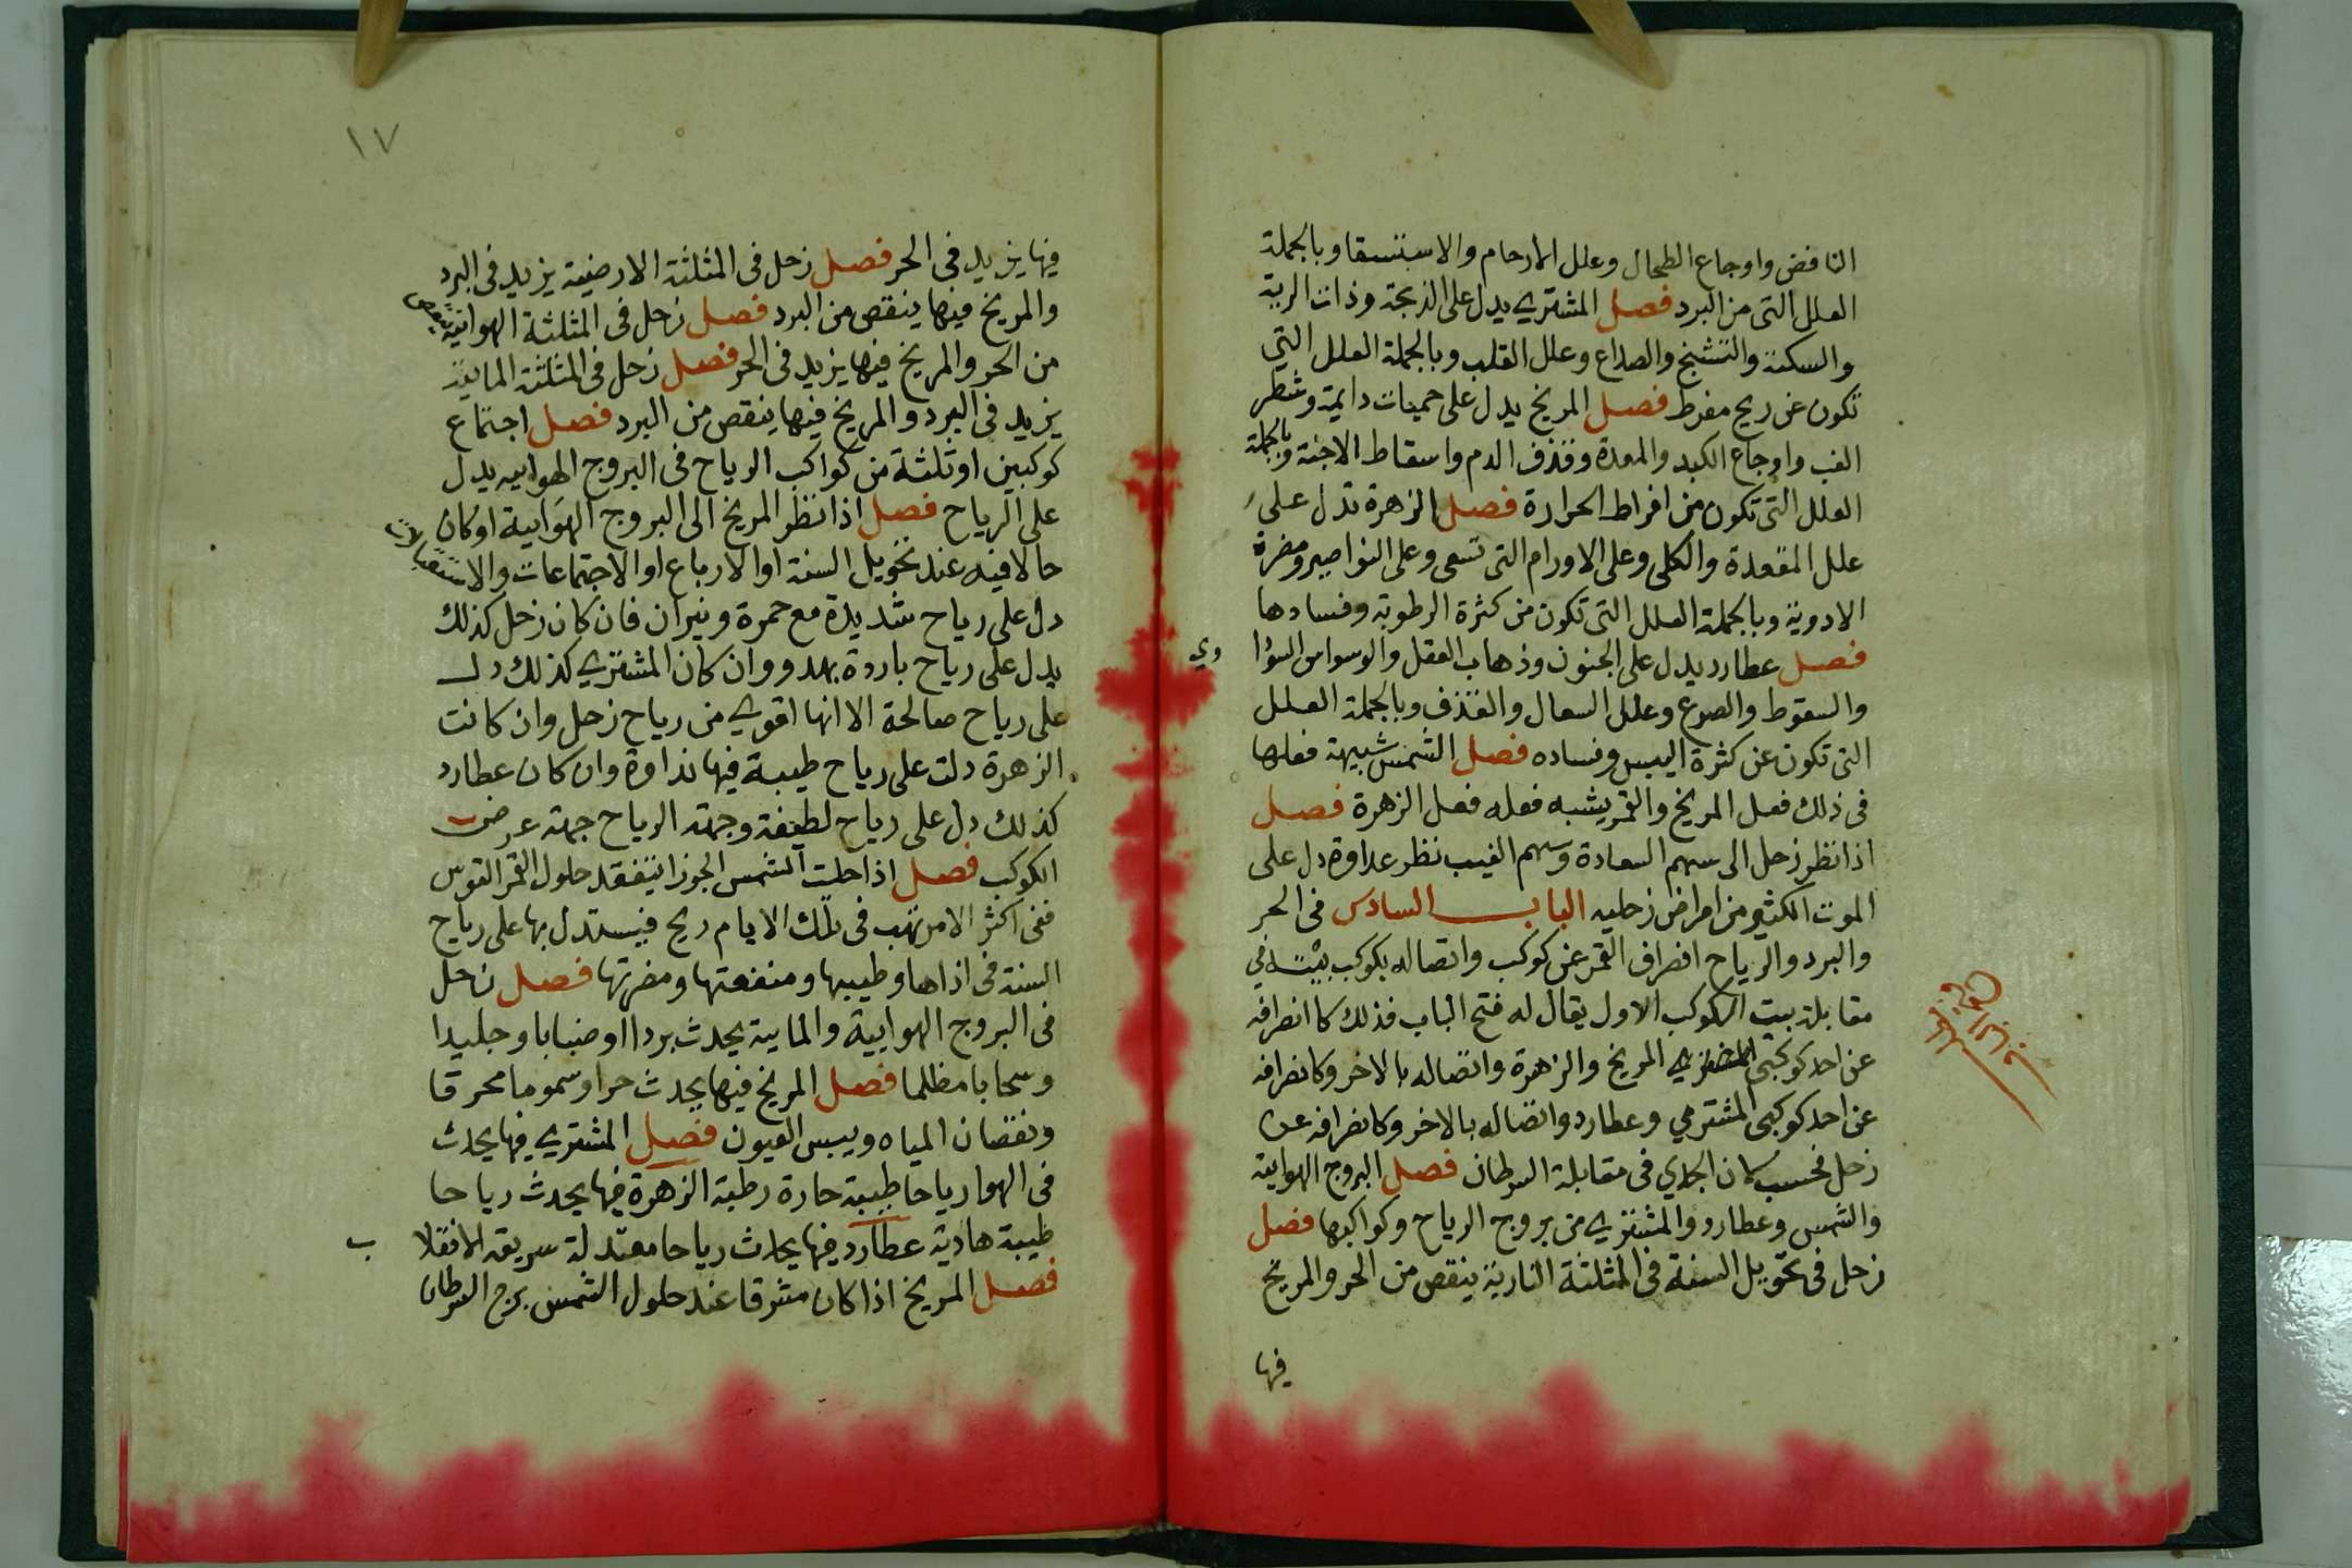 النافض واوجاع الطحال وعلل الارحام والاستسقا وبالجملة
العلل التى من البرد فصل المشترى يدل على الذبحة وذات الرية
والسكتة والتشنج والصداع وعلل القلب وبالجملة العلل التي
تكون عن ريح مفرط فصل المريخ يدل على حميات دايمة وشطر
الغب واوجاع الكبد والمعدة وقذف الدم واسقاط الاجنة وبالجملة
العلل التى تكون من افراط الحرارة فصل الزهرة تدل على
علل المقعدة والكلى وعلى الاورام التى تسعى وعلى النواصير ومضرة
الادوية وبالجملة العلل التى تكون من كثرة الرطوبة وفسادها
فصل عطارد يدل على الجنون وذهاب العقل والوسواس السودا وي
والسقوط والصرع وعلل السعال والقذف وبالجملة العلل
التى تكون عن كثرة اليبس وفساده فصل الشمس شبيهة فعلها
فى ذلك فعل المريخ والقمر يشبه فعله فعل الزهرة فصل
اذا نظر زحل الى سهم السعادة وسهم الغيب نظر عداوة دل على
الموت الكثير من امراض زحليه الباب السادس فى الحر
والبرد والرياح انصراف القمر عن كوكب واتصاله بكوكب بيته في
مقابلة بيت الكوكب الاول يقال له فتح الباب فذلك كاانصرافه
عن احد كوكبى المريخ والزهرة واتصاله بالاخر وكانصرافه
عن احد كوكبى المشتري وعطارد واتصاله بالاخر وكانصرافه عن
زحل فحسب كان الجدي فى مقابلة السرطان فصل البروج الهوايية
والشمس وعطارد والمشترى من بروج الرياح وكواكبها فصل
زحل فى تحويل السنة فى المثلثة النارية ينقص من الحر والمريخ
فيها
١٧
فيها يزيد فى الحر فصل زحل فى المثلثة الارضية يزيد فى البرد
والمريخ فيها ينقص من البرد فصل زحل فى المثلثة الهوائية ينقص
من الحر والمريخ فيها يزيد فى الحر فصل زحل فى المثلثة المائية
يزيد فى البرد والمريخ فيها ينقص من البرد فصل اجتماع
كوكبين او ثلثة من كواكب الرياح فى البروج الهواييه يدل
على الرياح فصل اذا نظر المريخ الى البروج الهوايية او كان
حالا فيه عند تحويل السنة او الارباع او الاجتماعات والاستقبالات
دل على رياح شديدة مع حمرة ونيران فان كان زحل كذلك
يدل على رياح باردة وان كان المشترى كذلك دل
على رياح صالحة الا انها اقوى من رياح زحل وان كانت
الزهرة دلت على رياح طيبة فيها نداوة وان كان عطارد
كذلك دل على رياح لطيفة وجهة الرياح جهة عرض
الكوكب فصل اذا حلت الشمس الجوزا يتفقد حلول القمر القوس
ففى اكثر الامر تهب فى تلك الايام ريح فيستدل بها على رياح
السنة فى اذاها وطيبها ومنفعتها ومضرتها فصل زحل
فى البروج الهوايية والمايية يحدث بردا اوضبابا وجليدا
وسحابا مظلما فصل المريخ فيها يحدث حرا وسموما محرقا
ونقصان المياه ويبس العيون فصل المشترى فيها يحدث
فى الهوا رياحا طيبة حارة رطبة الزهرة فيها يحدث رياحا
طيبة هادية عطارد فيها يحدث رياحا معتدلة سريعة الانقلا ب
فصل المريخ اذا كان مشرقا عند حلول الشمس برج السرطان